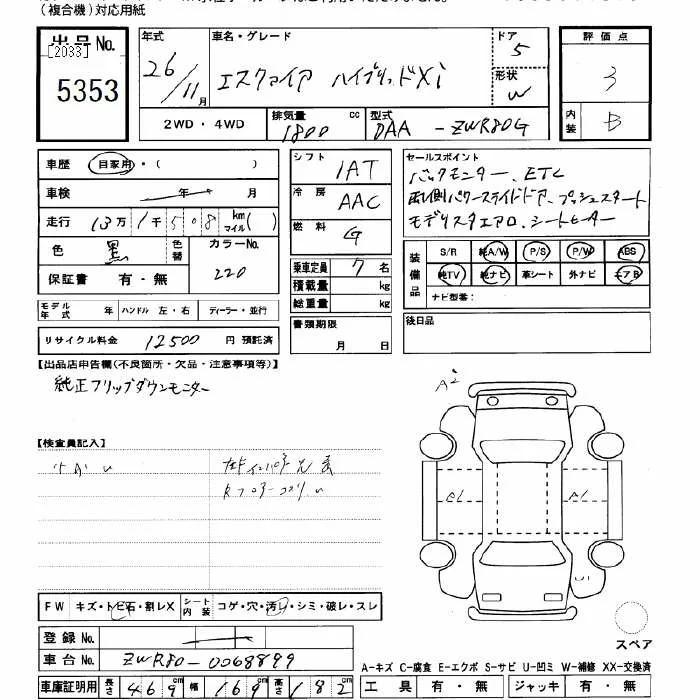 (複合機)対応用紙
出品No.
[2033]
5353
年式
26/11月
車名・グレード
エスクァイア ハイブリッドXi
ドア
5
形状
W
評価点
3
内装
B
2WD・4WD
排気量
1800 cc
型式
DAA-ZWR80G
車歴 自家用・( )
車検 年 月
走行 13万1千508km マイル( )
色 黒 色替
カラーNo.
220
保証書 有・無
モデル年式 年 ハンドル 左・右 ディーラー・並行
リサイクル料金 12500 円 預託済
シフト IAT
冷房 AAC
燃料 G
乗車定員 7名
積載量 kg
総重量 kg
書類期限
月 日
セールスポイント
バックモニター、ETC
両側パワースライドドア、プッシュスタート
モデリスタエアロ、シートヒーター
装備品
S/R 純A/W P/S P/W ABS
純TV 純ナビ 革シート 外ナビ エアB
ナビ型番:
後日品
【出品店申告欄(不良箇所・欠品・注意事項等)】
純正フリップダウンモニター
【検査員記入】
A2
AL
AL
U1
FW キズ・トビ石・割レX シート内装 コゲ・穴・汚レ・シミ・破レ・スレ
スペア
登録No.
車台No. ZWR80-0068899
A-キズ C-腐食 E-エクボ S-サビ U-凹ミ W-補修 XX-交換済
車庫証明用 長さ 469cm 幅 169cm 高さ 182
工具 有・無 ジャッキ 有・無